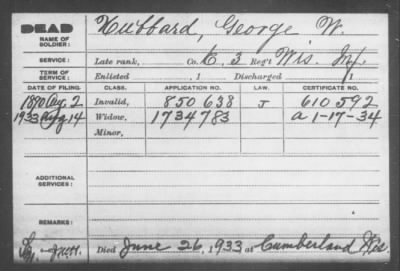 DEAD Hubbard, George W.
NAME OF
SOLDIER:
SERVICE: Late rank, Co. E, 3 Reg't Wis. Inf.
TERM OF
SERVICE: Enlisted , 1 Discharged , 1
DATE OF FILING. CLASS. APPLICATION NO. LAW. CERTIFICATE NO.
1890 Aug. 2 Invalid, 850 638 J 610 592
1933 Aug 14 Widow, 1734783 a 1-17-34
Minor,
ADDITIONAL
SERVICES:
REMARKS:
Died June 26, 1933 at Cumberland Wis